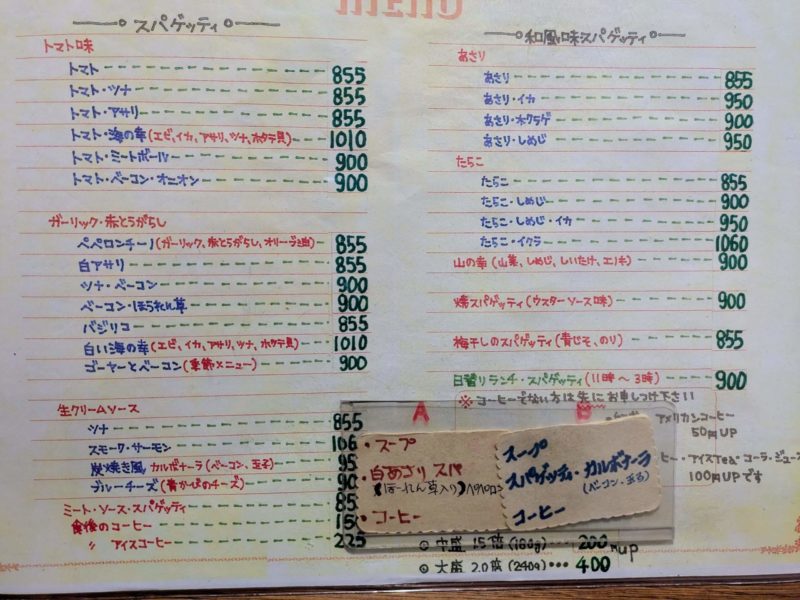 MENU
スパゲッティ
トマト味
トマト 855
トマト・ツナ 855
トマト・アサリ 855
トマト・海の幸(エビ、イカ、アサリ、ツナ、ホタテ貝) 1010
トマト・ミートボール 900
トマト・ベーコン・オニオン 900
ガーリック・赤とうがらし
ペペロンチーノ(ガーリック、赤とうがらし、オリーブ油) 855
白アサリ 855
ツナ・ベーコン 900
ベーコン・ほうれん草 900
バジリコ 855
白い海の幸(エビ、イカ、アサリ、ツナ、ホタテ貝) 1010
ゴーヤーとベーコン(季節メニュー) 900
生クリームソース
ツナ 855
スモーク・サーモン
炭焼き風 カルボナーラ(ベーコン、玉子)
ブルーチーズ(青かびのチーズ)
ミート・ソース・スパゲッティ
食後のコーヒー
〃 アイスコーヒー 225
和風味スパゲティ
あさり
あさり 855
あさり・イカ 950
あさり・木クラゲ 900
あさり・しめじ 950
たらこ
たらこ 855
たらこ・しめじ 900
たらこ・しめじ・イカ 950
たらこ・イクラ 1060
山の幸(山菜、しめじ、しいたけ、エノキ) 900
焼スパゲッティ(ウスターソース味) 900
梅干しのスパゲッティ(青じそ、のり) 855
日替りランチ・スパゲッティ(11時〜3時) 900
※コーヒーでない方は先にお申しつけ下さい
アメリカンコーヒー
50円UP
ヒー・アイスTea・コーラ・ジュース
100円UPです
A
・スープ
・白あさりスパ
(ほーれん草入り)
・コーヒー
B
スープ
スパゲッティ・カルボナーラ
(ベーコン・玉子)
コーヒー
◎ 中盛 1.5倍(180g)… 200円up
◎ 大盛 2.0倍(240g)… 400